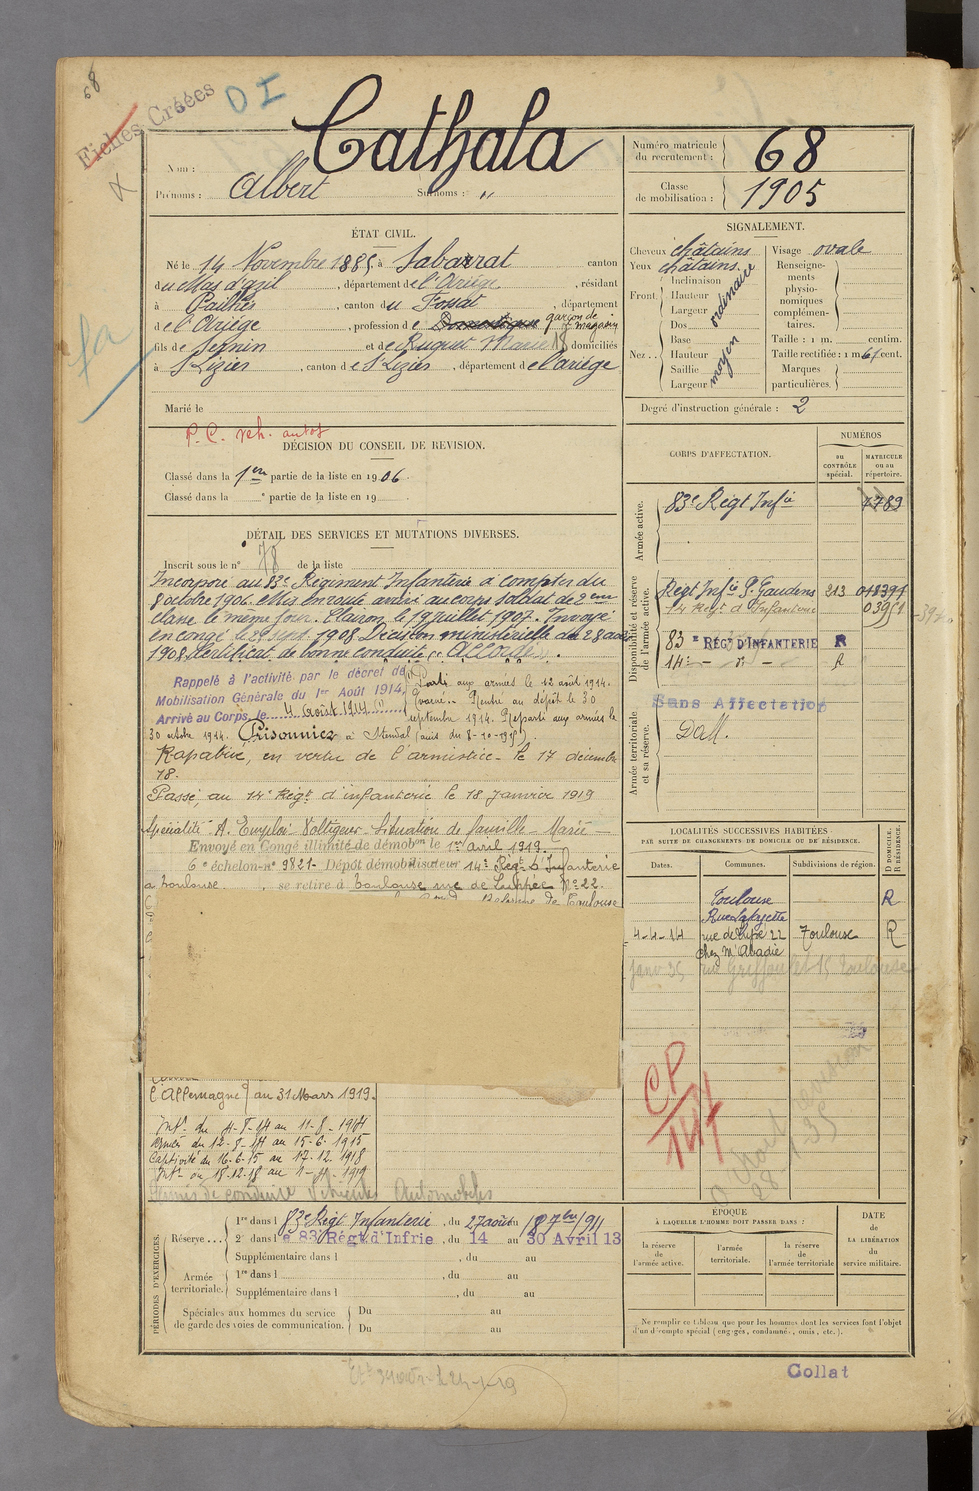 68
Fiches Créées
D I
Cathala
Nom :
Prénoms : Albert Surnoms : "
Numéro matricule du recrutement : 68
Classe de mobilisation : 1905
ÉTAT CIVIL.
Né le 14 Novembre 1885, à Sabarrat canton
du Mas d'azil, département de l'Ariège, résidant
à Pailhès, canton du Fossat, département
de l'Ariège, profession de Domestique garçon de magasin
fils de Sernin et de Ruquet Marie domiciliés
à St Lizier, canton de St Lizier, département de l'ariège
Marié le
P. C. veh. autos
SIGNALEMENT.
Cheveux châtains
Yeux châtains
Front. Inclinaison
Hauteur ordinaire
Largeur
Dos
Nez.. Base
Hauteur moyen
Saillie
Largeur
Visage ovale
Renseignements physionomiques complémentaires.
Taille : 1 m. centim.
Taille rectifiée : 1 m 61 cent.
Marques particulières.
Degré d'instruction générale : 2
DÉCISION DU CONSEIL DE REVISION.
Classé dans la 1ere partie de la liste en 1906.
Classé dans la e partie de la liste en 19
DÉTAIL DES SERVICES ET MUTATIONS DIVERSES.
Inscrit sous le n° 78 de la liste
Incorporé au 83e Régiment Infanterie à compter du
8 octobre 1906. Mis en route arrivé au corps soldat de 2eme
classe le même jour. Clairon le 19 juillet 1907. Envoyé
en congé le 29 sept. 1908 Décision ministérielle du 28 août
1908 Certificat de bonne conduite "Accordé".
Rappelé à l'activité par le décret de
Mobilisation Générale du 1er Août 1914,
Arrivé au Corps, le 4 Août 1914 (1)
Parti aux armées le 12 août 1914.
Evacué.. Rentré au dépôt le 30
septembre 1914. Reparti aux armées le
30 octobre 1914. Prisonnier à Stendal (avis du 8-10-1915).
Rapatrié, en vertu de l'armistice - le 17 décembre
18.
Passé au 14e Régt d'infanterie le 18 Janvier 1919
Spécialité - A. Emploi Voltigeur - Situation de famille - Marié -
Envoyé en Congé illimité de démobon le 1er avril 1919.
6e échelon-n° 9821 - Dépôt démobilisateur 14e Régt d'Infanterie
à Toulouse, se retire à Toulouse rue de N° 22.
de Toulouse
l'Allemagne au 31 Mars 1919.
Int. du 4-8-14 au 11-8-1914
Armées du 12-8-14 au 15-6-1915
Captivité du 16-6-15 au 17-12-1918
Int. du 18-12-18 au
Permis de conduire Véhicules Automobiles
CORPS D'AFFECTATION.
NUMÉROS
au CONTRÔLE spécial.
MATRICULE ou au répertoire.
Armée active.
83e Régt Infie 7789
Disponibilité et réserve de l'armée active.
Régt Infie St Gaudens 213
14 Régt d'Infanterie
83 e RÉGt D'INFANTERIE R
14e - " - R
Armée territoriale et sa réserve.
Sans Affectation
DaM.
LOCALITÉS SUCCESSIVES HABITÉES
PAR SUITE DE CHANGEMENTS DE DOMICILE OU DE RÉSIDENCE.
Dates. Communes. Subdivisions de région.
D DOMICILE. R RÉSIDENCE.
Toulouse R
Rue Lafayette
4-4-14 rue de 22 Toulouse R
chez Mr Abadie
Janv 35 15 Toulouse
CP
144
28-1-35
PÉRIODES D'EXERCICES.
Réserve... 1re dans le 83e Régt Infanterie, du 27 août au 18 7bre 1911
2e dans le 83 Régt. d'Infrie, du 14 au 30 Avril 13
Supplémentaire dans l , du au
Armée territoriale. 1re dans l , du au
Supplémentaire dans l , du au
Spéciales aux hommes du service
de garde des voies de communication. Du au
Du au
ÉPOQUE
À LAQUELLE L'HOMME DOIT PASSER DANS :
la réserve de l'armée active.
l'armée territoriale.
la réserve de l'armée territoriale
DATE
de
LA LIBÉRATION
du
service militaire.
Ne remplir ce tableau que pour les hommes dont les services font l'objet
d'un décompte spécial (engagés, condamnés, omis, etc.).
Collat